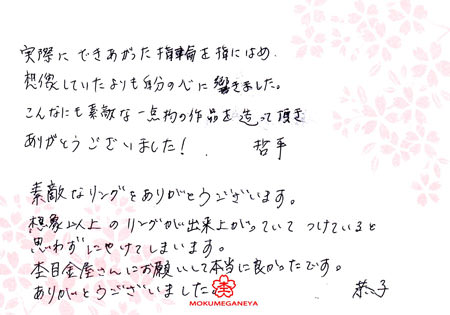 実際にできあがった指輪を指にはめ、
想像していたよりも自分の心に響きました。
こんなにも素敵な一点物の作品を造って頂き
ありがとうございました！ 哲平
素敵なリングをありがとうございます。
想象以上のリングが出来上がっていてつけていると
思わずにやけてしまいます。
杢目金屋さんにお願いして本当に良かったです。
ありがとうございました。 恭子
杢
MOKUMEGANEYA